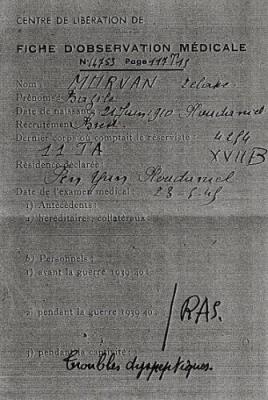 CENTRE DE LIBÉRATION DE
FICHE D'OBSERVATION MÉDICALE
N° 4753 Page 117T19
Nom : MORVAN
Prénoms : Basile
Date de naissance : 21 Juin 1910 Ploudaniel
Recrutement : Brest
Dernier corps où comptait le réserviste : 4254
11 TA XVII B
Résidence déclarée :
Pen Yeun Ploudaniel
Date de l'examen médical : 23-5-45
1) Antécédents :
a) héréditaires, collatéraux :
b) Personnels :
1) avant la guerre 1939-40 :
2) pendant la guerre 1939-40 : RAS.
j) pendant la captivité :
Troubles dyspeptiques.